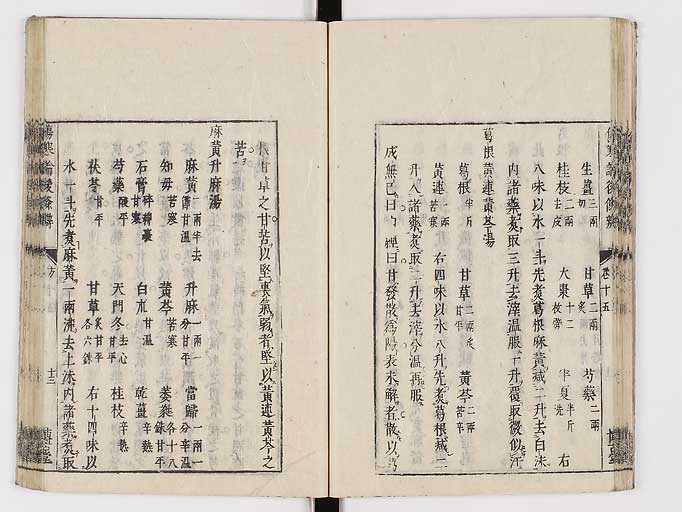 生薑三兩切 甘草二兩炙 芍藥二兩
桂枝二兩去皮 大棗十二枚擘 半夏半斤洗 右
八味以水一斗先煮葛根麻黃減二升去白沫
內諸藥煮取三升去滓溫服一升覆取微似汗
葛根黃連黃芩湯
葛根半斤 甘草二兩炙甘平 黃芩二兩苦寒
黃連三兩苦寒 右四味以水八升先煮葛根減二
升入諸藥煮取二升去滓分溫再服
成無已曰內經曰甘發散為陽表未解者散以葛
卷十五
根甘草之甘苦以堅裏氣弱者堅以黃連黃芩之
苦
麻黃升麻湯
麻黃二兩半去節甘溫 升麻一兩一分甘平 當歸一兩一分辛溫
知毋苦寒 黃芩苦寒 萎蕤各十八銖甘平
石膏碎綿裹甘寒 白朮甘溫 乾薑辛熱
芍藥酸平 天門冬去心甘平 桂枝辛熱
茯苓甘平 甘草炙甘平各六銖 右十四味以
水一斗先煮麻黃一兩沸去上沫內諸藥煮取
傷寒論後條辨
方
十三